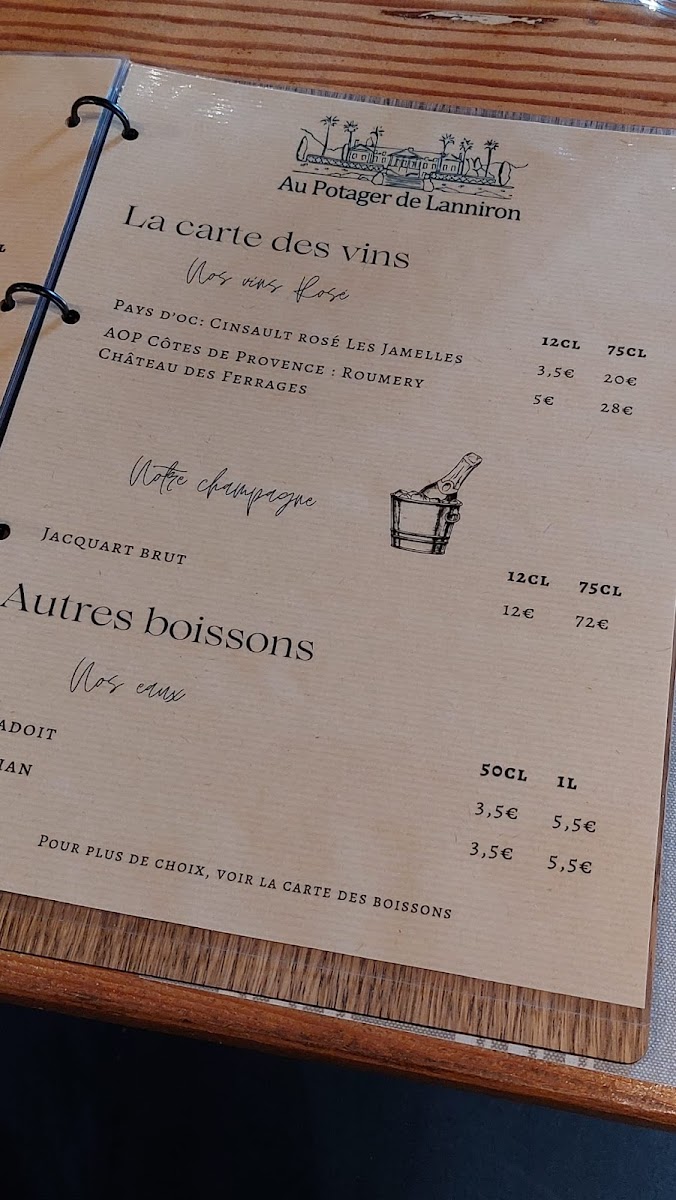 Au Potager de Lanniron
La carte des vins
Nos vins Rosé
12CL 75CL
Pays d'oc: Cinsault rosé Les Jamelles 3,5€ 20€
AOP Côtes de Provence : Roumery 5€ 28€
Château des Ferrages
Notre champagne
12CL 75CL
Jacquart brut 12€ 72€
Autres boissons
Nos eaux
50CL 1L
ADOIT 3,5€ 5,5€
IAN 3,5€ 5,5€
Pour plus de choix, voir la carte des boissons